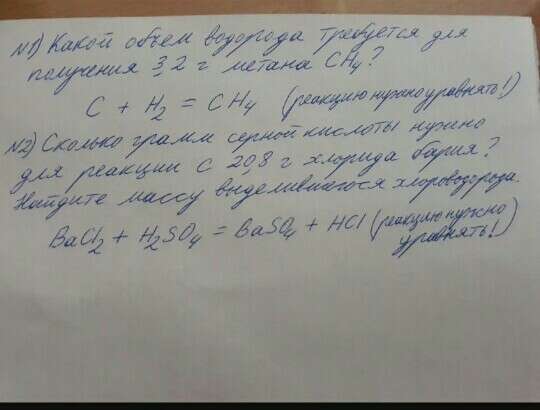 №1) Какой объем водорода требуется для
получения 3,2 г метана CH₄?
C + H₂ = CH₄ (реакцию нужно уравнять!)
№2) Сколько грамм серной кислоты нужно
для реакции с 20,8 г хлорида бария?
Найдите массу выделившегося хлороводорода.
BaCl₂ + H₂SO₄ = BaSO₄ + HCl (реакцию нужно
уравнять!)